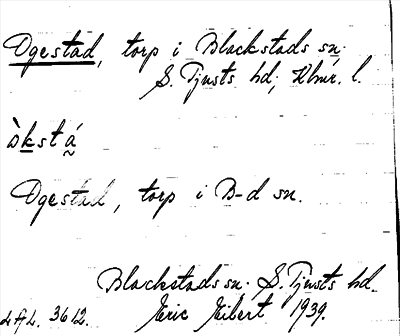 Ogestad, torp i Blackstads sn.
S. Tjusts hd; Klmr. l.
ò̀kstá̰
Ogestad, torp i B-d sn.
Blackstads sn. S. Tjusts hd.
Eric Eibert 1939.
3612.